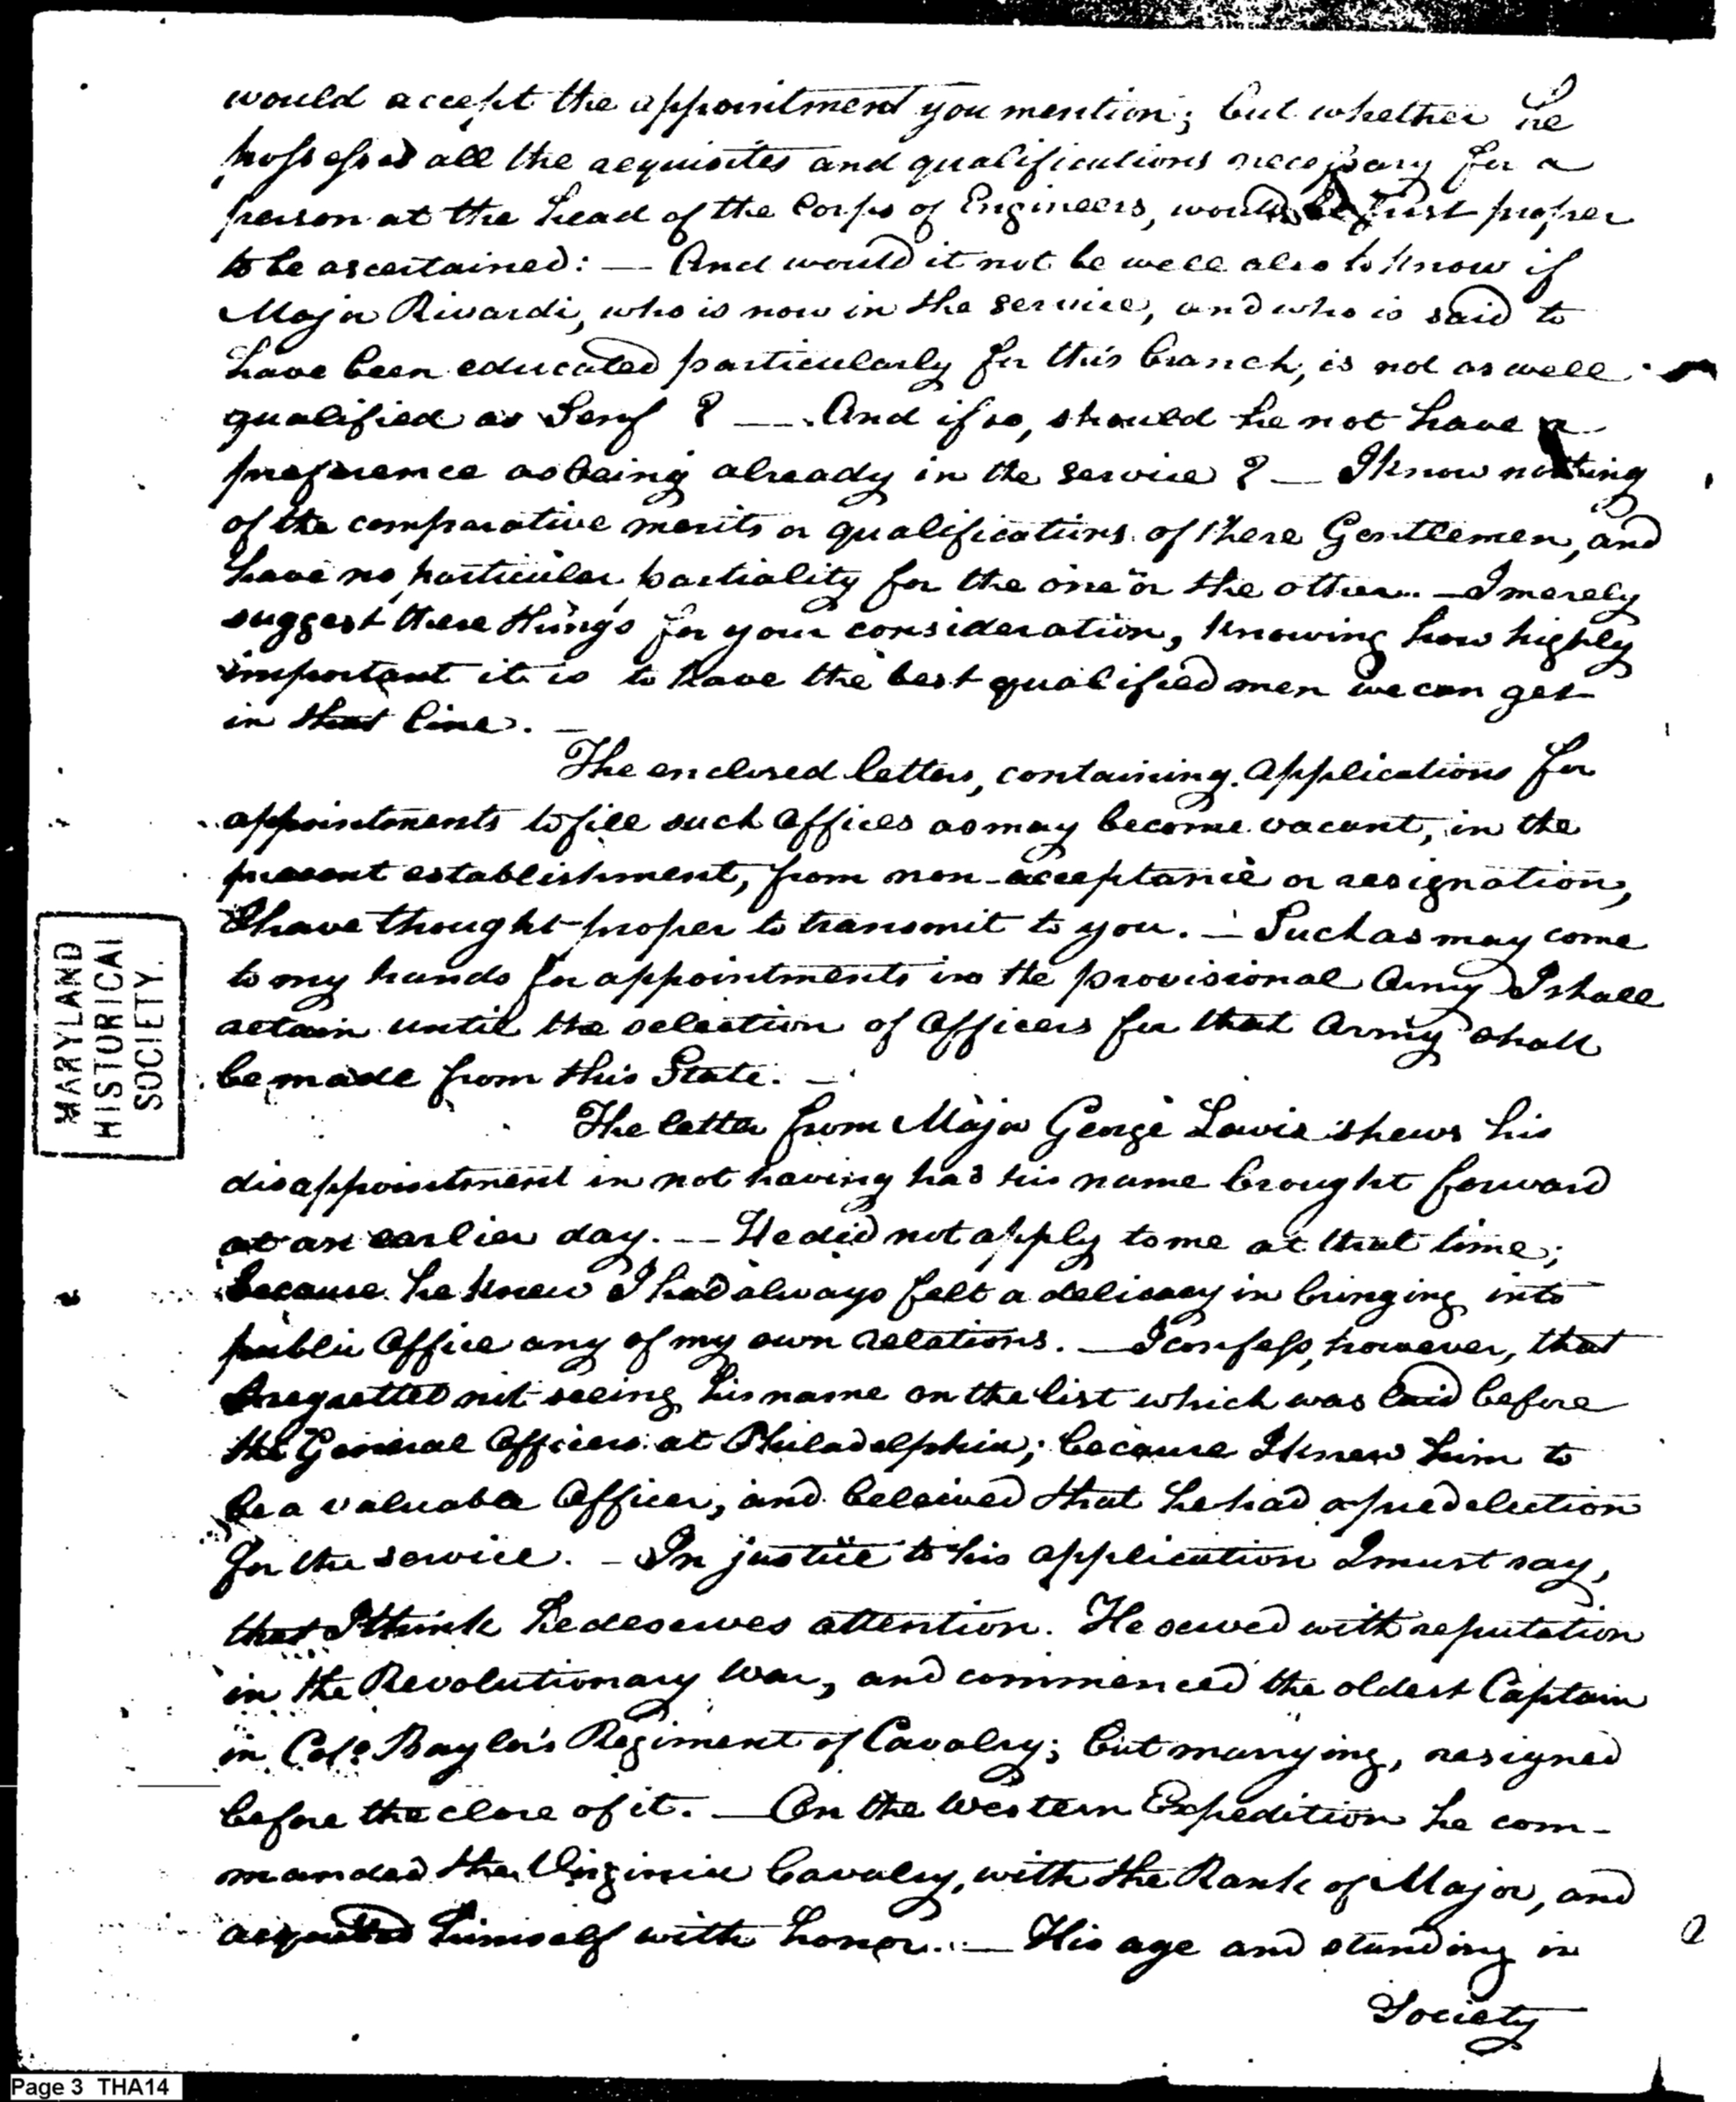 would accept the appointment you mention; but whether he
possesses all the requisites and qualifications necessary for a
person at the head of the Corps of Engineers, would be first proper
to be ascertained: — And would it not be well also to know if
Major Rivardi, who is now in the service, and who is said to
have been educated particularly for this branch, is not as well
qualified as Senf ? — And if so, should he not have a
preference as being already in the service ? — I know nothing
of the comparative merits or qualifications of these Gentlemen, and
have no particular partiality for the one or the other. — I merely
suggest these things for your consideration, knowing how highly
important it is to have the best qualified men we can get
in that line. —
The enclosed letters, containing applications for
appointments to fill such Offices as may become vacant, in the
present establishment, from non-acceptance or resignation,
I have thought proper to transmit to you. — Such as may come
to my hands for appointments in the provisional Army I shall
retain until the selection of Officers for that Army shall
be made from this State. —
The letter from Major George Lewis shews his
disappointment in not having had his name brought forward
at an earlier day. — He did not apply to me at that time;
because he knew I had always felt a delicacy in bringing into
public Office any of my own relations. — I confess, however, that
I regretted not seeing his name on the list which was laid before
the General Officers at Philadelphia; because I knew him to
be a valuable Officer, and beleived that he had a predelection
for the service. — In justice to his application I must say,
that I think he deserves attention. He served with reputation
in the Revolutionary War, and commenced the oldest Captain
in Colo. Baylor's Regiment of Cavalry; but marrying, resigned
before the close of it. — On the Western Expedition he com-
manded the Virginia Cavalry, with the Rank of Major, and
acquitted himself with honor. — His age and standing in
Society
MARYLAND
HISTORICAL
SOCIETY.
Page 3 THA14